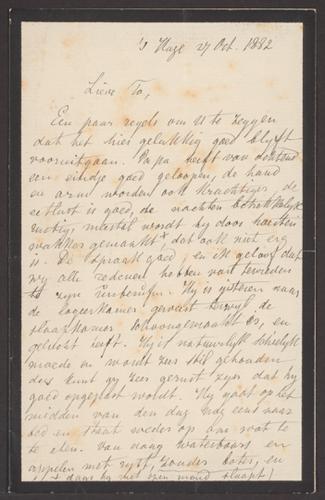 's Hage 27 Oct. 1882
Lieve To,
Een paar regels om U te zeggen
dat het hier gelukkig goed blijft
vooruitgaan. Papa heeft van
een eindje goed geloopen, de hand
en arm worden ook krachtiger, de
eetlust is goed, de nachten betrekkelijk
rustig, meestal wordt hij door hoesten
wakker gemaakt x, dat ook niet erg
is. De spraak goed, en ik geloof dat
wij alle redenen hebben van tevreden
te zijn. Hij is gisteren naar
de logeerkamer geweest terwijl de
slaapkamer schoongemaakt is, en
heeft. Hij is natuurlijk
moede en wordt zeer stil gehouden
dus kunt gij zeer gerust zijn dat hij
goed opgepast wordt. Hij gaat op het
midden van den dag nog eens naar
bed en staat weder op om wat te
te eten. Van daag waterbaars en
appelen met rijst, zonder boter, en
x daar hij met open mond slaapt!